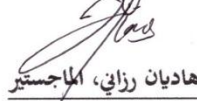 هاديان رزاني، الماجستير